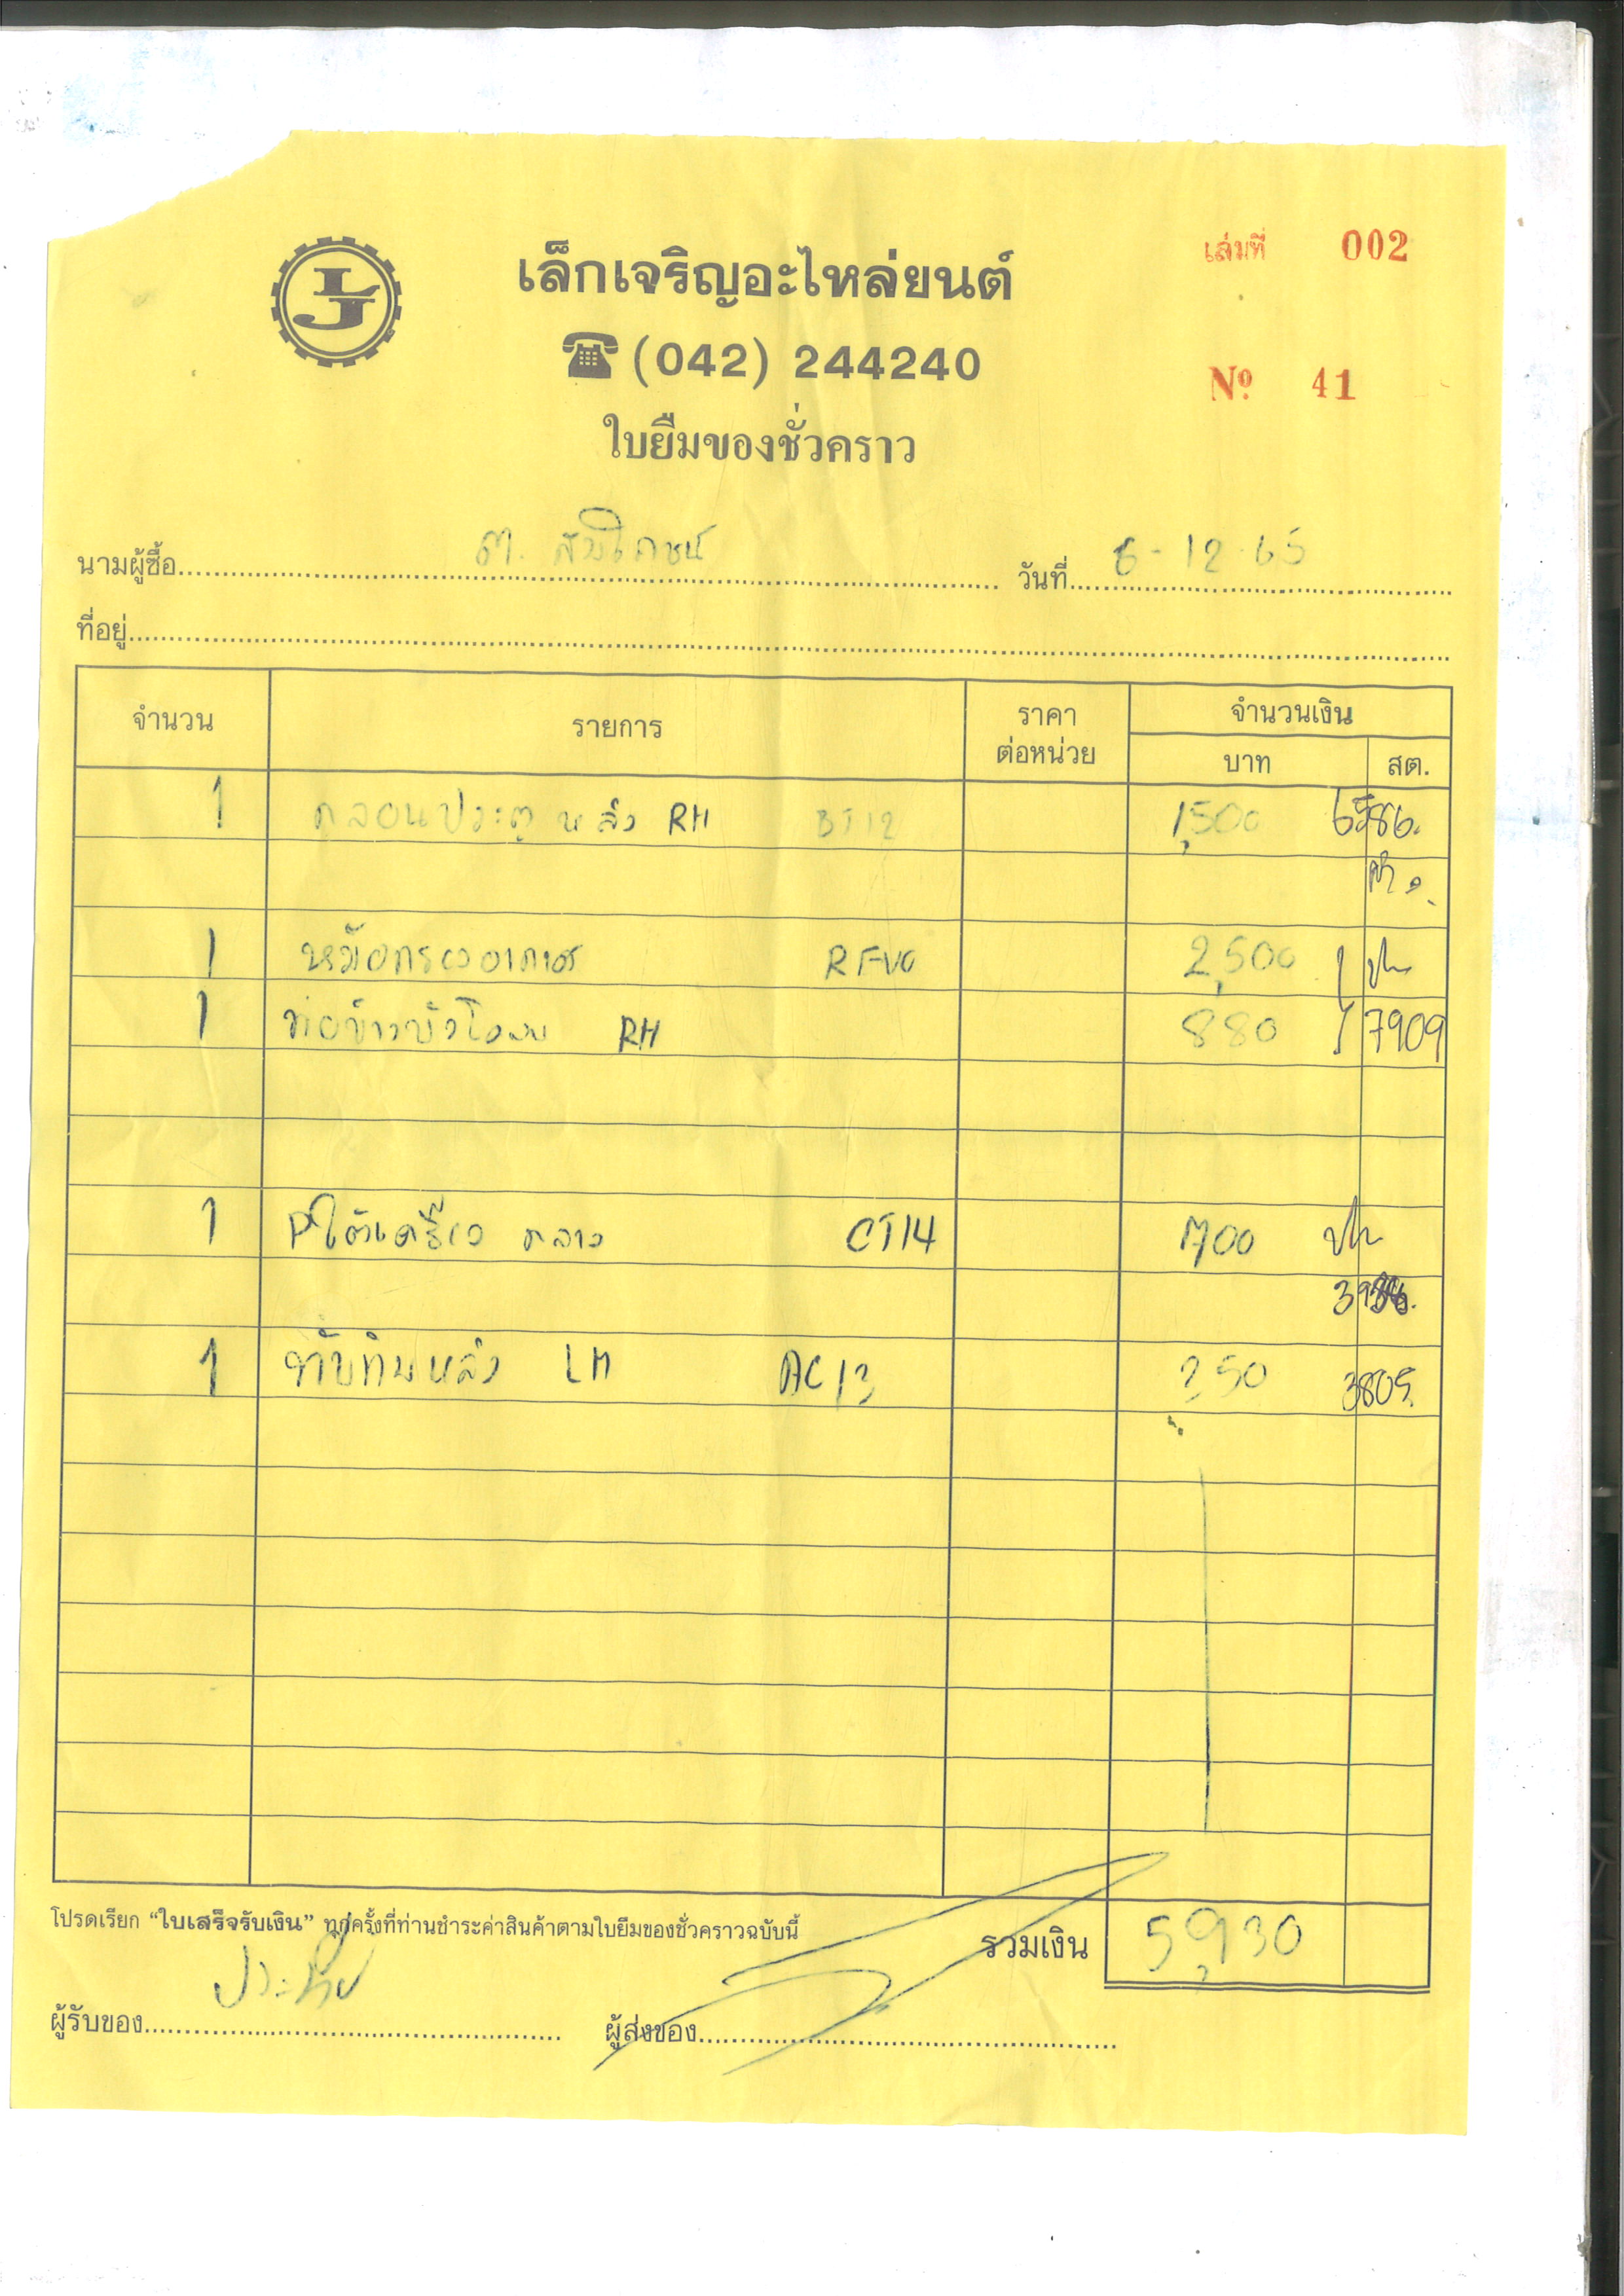 เล่มที่ 002
เล็กเจริญอะไหล่ยนต์
(042) 244240
Nº 41
ใบยืมของชั่วคราว
นามผู้ซื้อ ต. วันที่ 6-12-65
ที่อยู่
จำนวน รายการ ราคาต่อหน่วย จำนวนเงิน
บาท สต.
1 กลอนประตู หลัง RH BT12 1,500 6586.
1 หม้อกรองอากาศ 2,500
1 RH 880 7909
1 กลาง CT14 700
1 ทับทิมหลัง LH AC13 350 3805.
โปรดเรียก “ใบเสร็จรับเงิน” ทุกครั้งที่ท่านชำระค่าสินค้าตามใบยืมของชั่วคราวฉบับนี้ รวมเงิน 5,930
ผู้รับของ ผู้ส่งของ